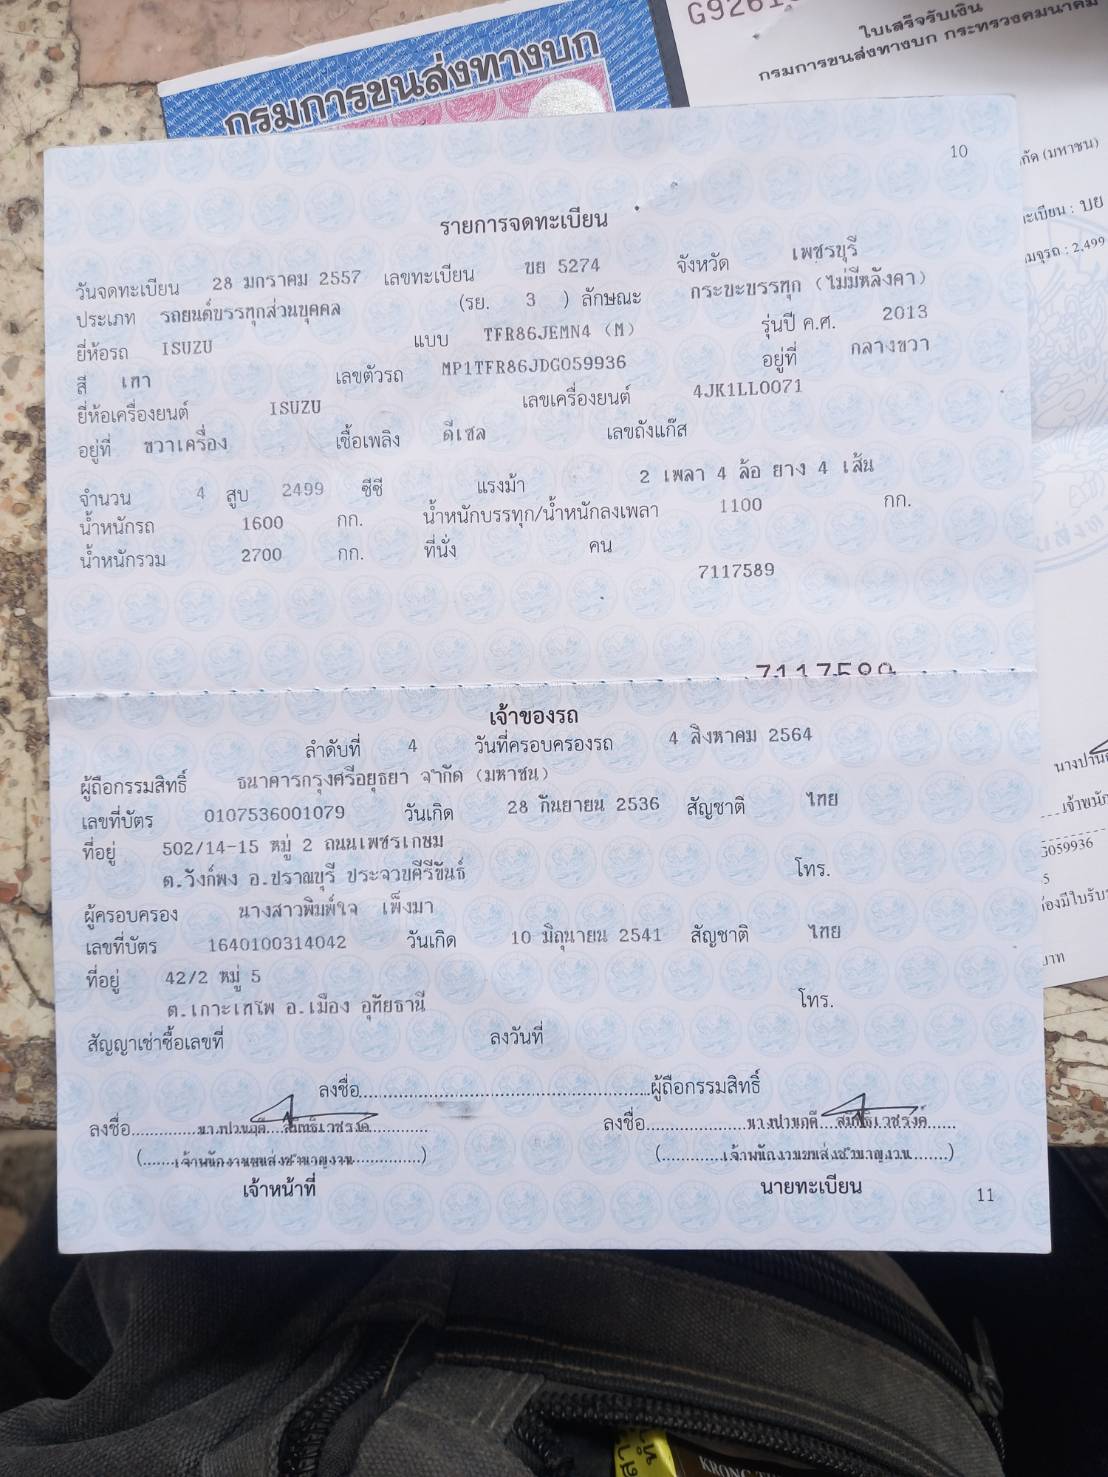 กรมการขนส่งทางบก
ใบเสร็จรับเงิน
กรมการขนส่งทางบก กระทรวงคมนาคม
10
รายการจดทะเบียน
วันจดทะเบียน 28 มกราคม 2557 เลขทะเบียน ขย 5274 จังหวัด เพชรบุรี
ประเภท รถยนต์บรรทุกส่วนบุคคล (รย. 3 ) ลักษณะ กระบะบรรทุก (ไม่มีหลังคา)
ยี่ห้อรถ ISUZU แบบ TFR86JEMN4 (M) รุ่นปี ค.ศ. 2013
สี เทา เลขตัวรถ MP1TFR86JDG059936 อยู่ที่ กลางขวา
ยี่ห้อเครื่องยนต์ ISUZU เลขเครื่องยนต์ 4JK1LL0071
อยู่ที่ ขวาเครื่อง เชื้อเพลิง ดีเซล เลขถังแก๊ส
จำนวน 4 สูบ 2499 ซีซี แรงม้า 2 เพลา 4 ล้อ ยาง 4 เส้น
น้ำหนักรถ 1600 กก. น้ำหนักบรรทุก/น้ำหนักลงเพลา 1100 กก.
น้ำหนักรวม 2700 กก. ที่นั่ง คน
7117589
7117589
เจ้าของรถ
ลำดับที่ 4 วันที่ครอบครองรถ 4 สิงหาคม 2564
ผู้ถือกรรมสิทธิ์ ธนาคารกรุงศรีอยุธยา จำกัด (มหาชน)
เลขที่บัตร 0107536001079 วันเกิด 28 กันยายน 2536 สัญชาติ ไทย
ที่อยู่ 502/14-15 หมู่ 2 ถนนเพชรเกษม
ต.วังก์พง อ.ปราณบุรี ประจวบคีรีขันธ์ โทร.
ผู้ครอบครอง นางสาวพิมพ์ใจ เพ็งมา
เลขที่บัตร 1640100314042 วันเกิด 10 มิถุนายน 2541 สัญชาติ ไทย
ที่อยู่ 42/2 หมู่ 5
ต.เกาะเทโพ อ.เมือง อุทัยธานี โทร.
สัญญาเช่าซื้อเลขที่ ลงวันที่
ลงชื่อ ผู้ถือกรรมสิทธิ์
ลงชื่อ ลงชื่อ
(เจ้าพนักงานขนส่งชำนาญงาน) (เจ้าพนักงานขนส่งชำนาญงาน)
เจ้าหน้าที่ นายทะเบียน
11